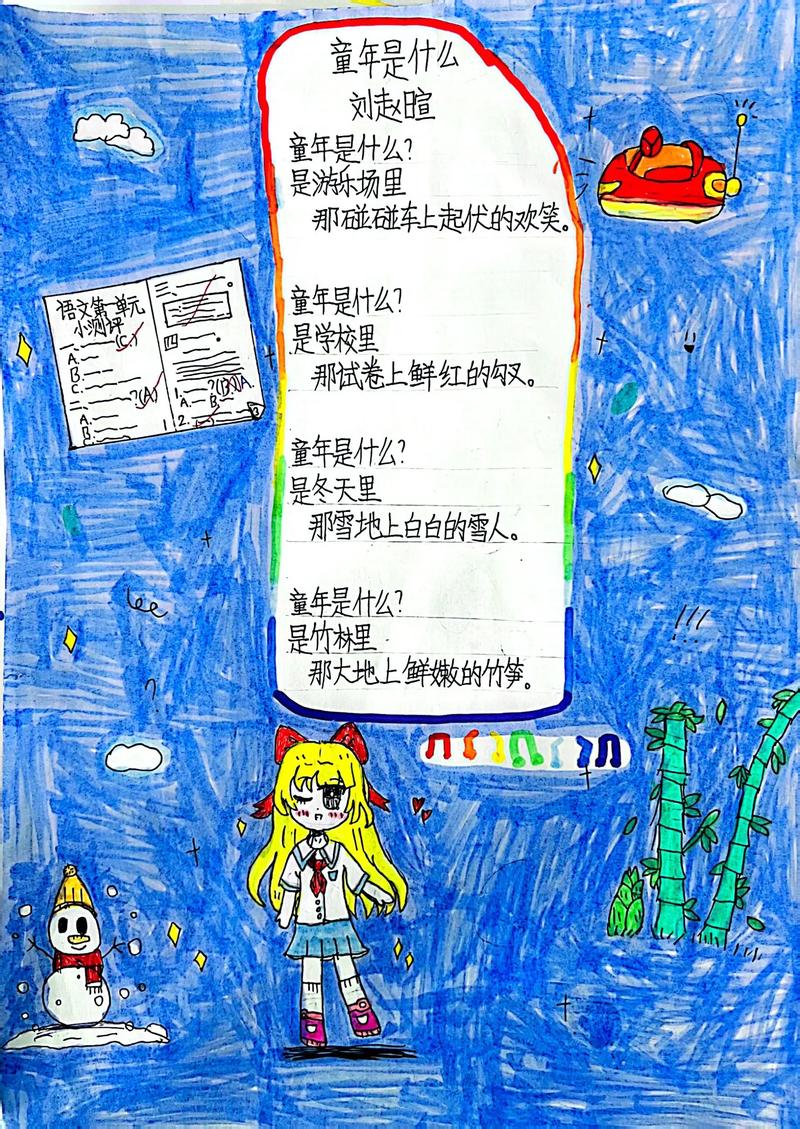 童年是什么
刘赵暄
童年是什么?
是游乐场里
那碰碰车上起伏的欢笑。
童年是什么?
是学校里
那试卷上鲜红的勾叉。
童年是什么?
是冬天里
那雪地上白白的雪人。
童年是什么?
是竹林里
那大地上鲜嫩的竹笋。
语文第一单元
小测评
一、(C)
A.
B.
C.
二、?(A)
A.
B.
C.
三、
四
1.
A. B.
2.
?
!!!